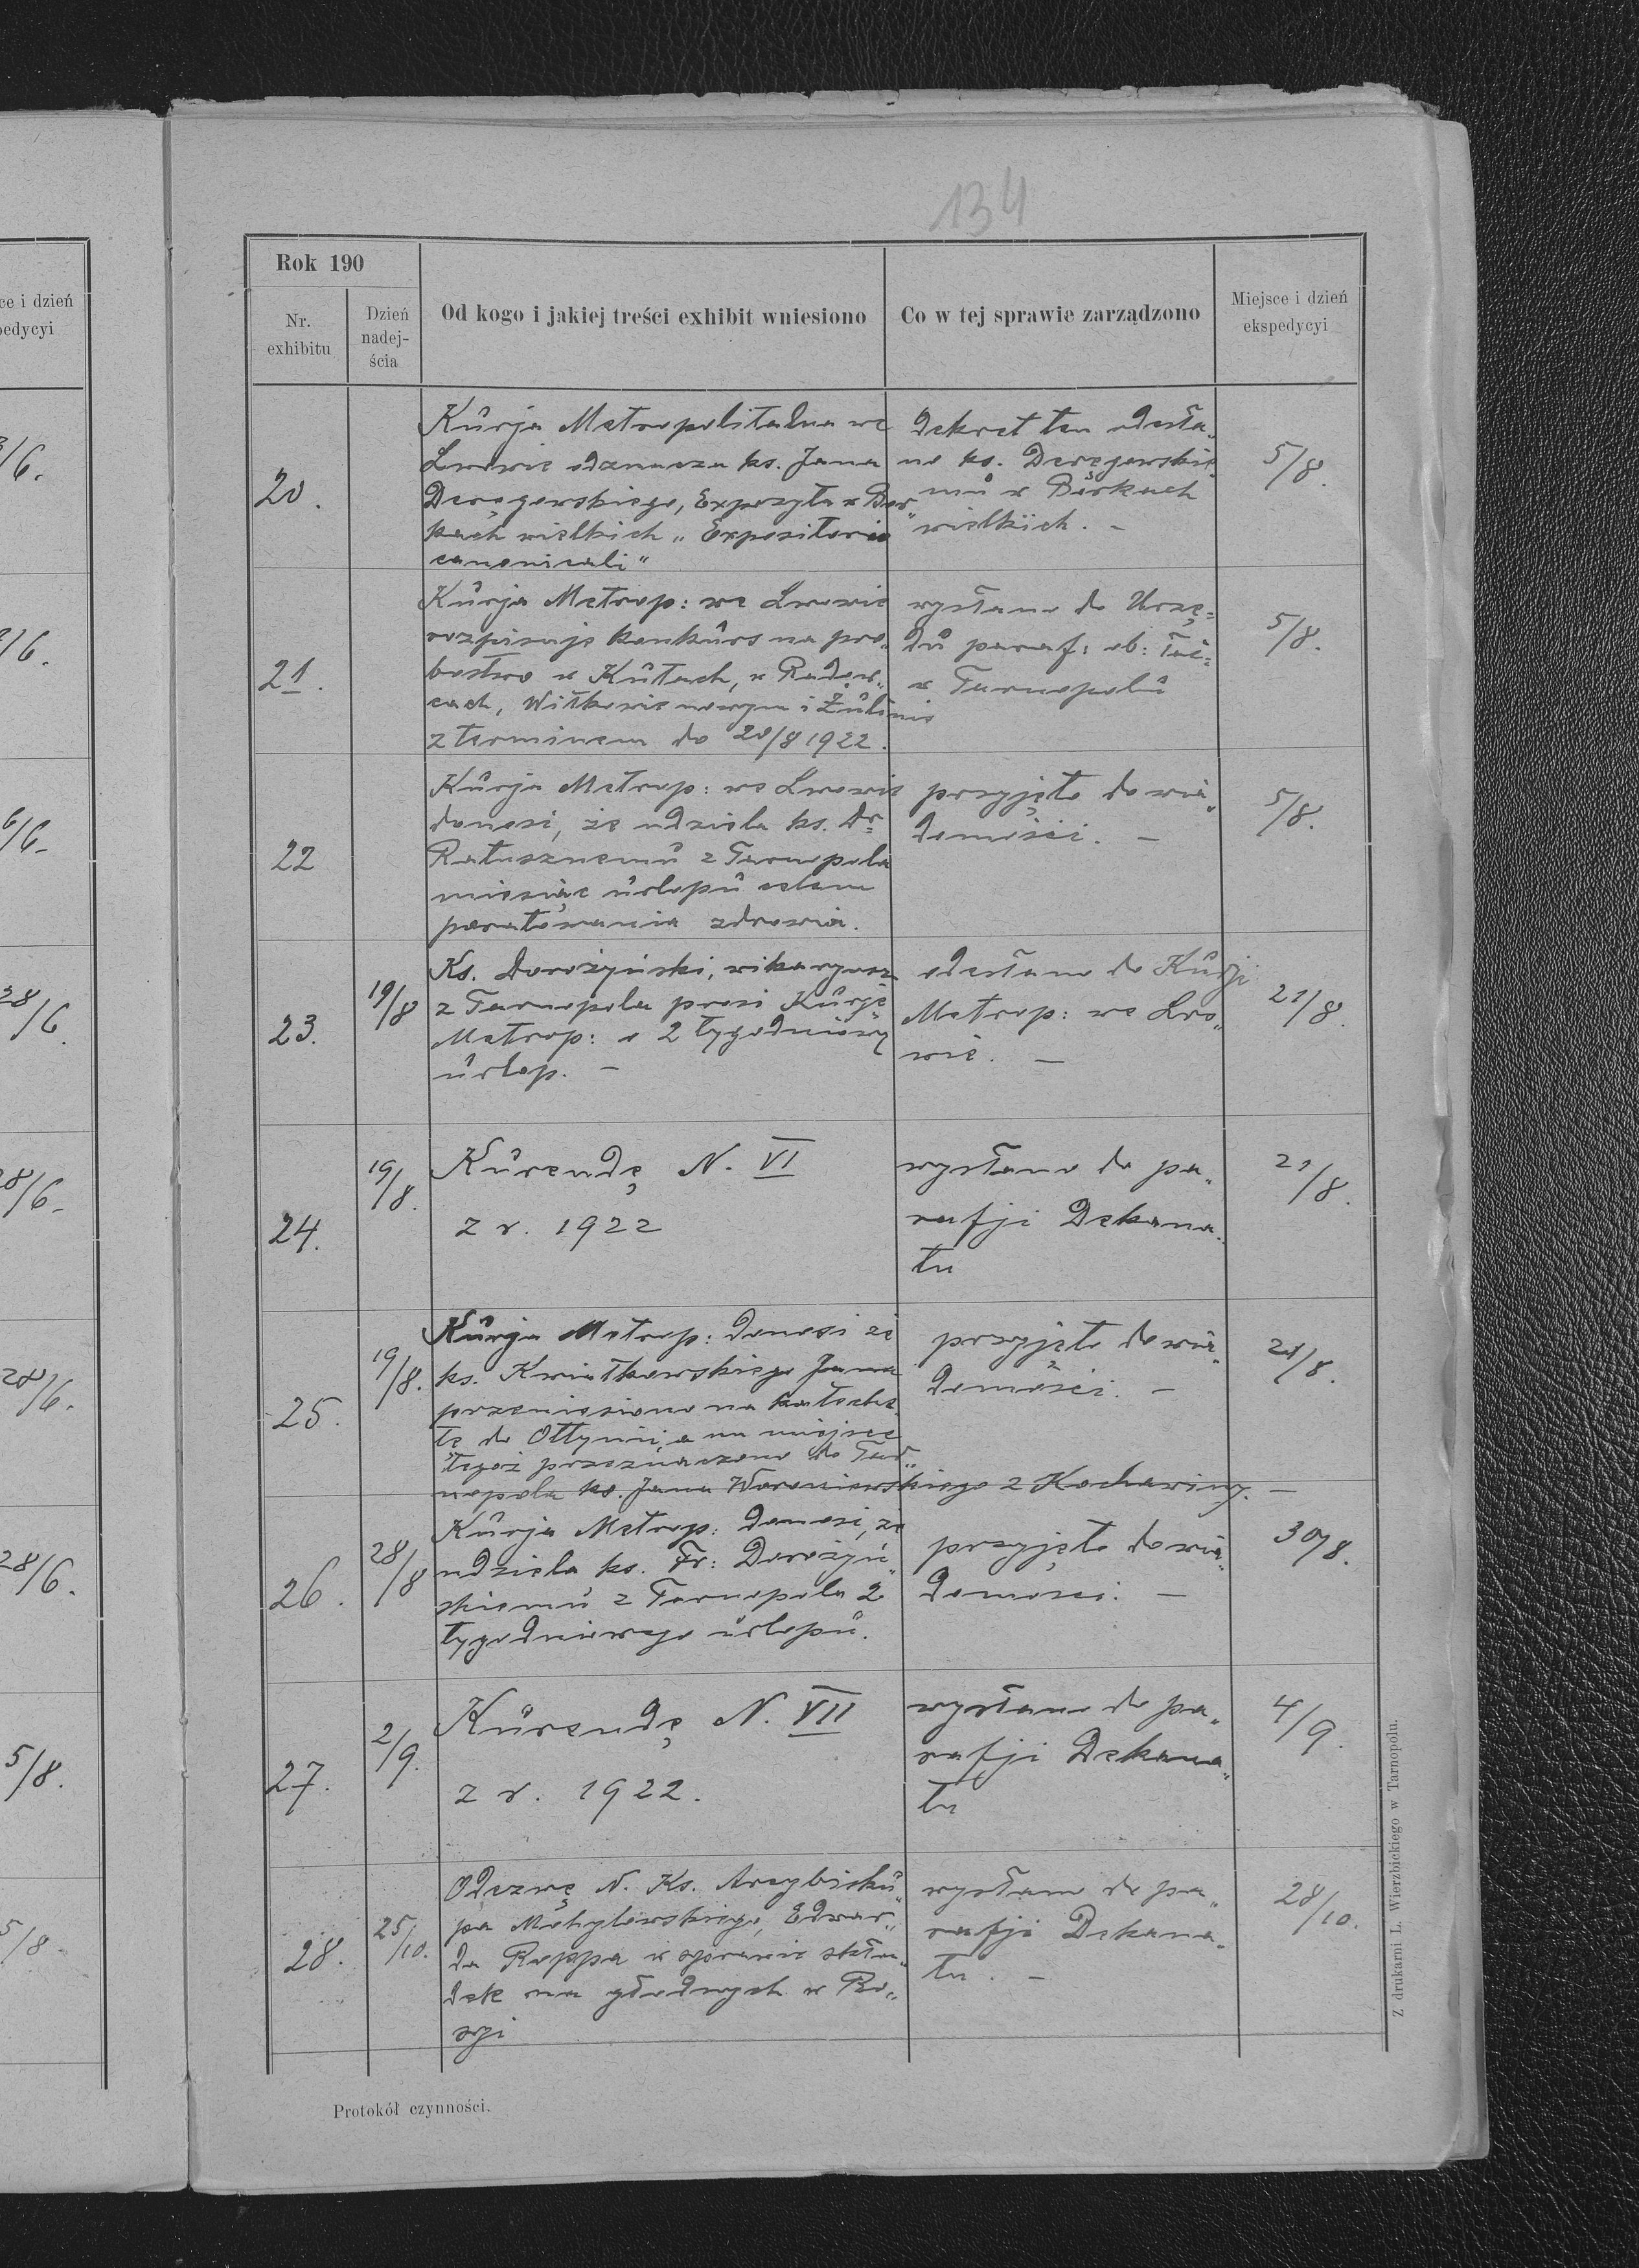 134
ce i dzień
pedycyi
3/6.
2/6.
6/6.
28/6.
28/6.
28/6.
28/6.
5/8.
5/8.
Rok 190
Nr.
exhibitu
Dzień
nadej-
ścia
Od kogo i jakiej treści exhibit wniesiono
Co w tej sprawie zarządzono
Miejsce i dzień
ekspedycyi
20.
Kurja Metropolitalna we
Lwowie odznacza ks. Jana
Deręgowskiego, Expozyta w Bor„
kach wielkich „Expositorio
canonicali"
Dekret ten odesła„
no ks. Deręgowskie
mu w Borkach
wielkich. –
5/8.
21.
Kurja Metrop: we Lwowie
rozpisuje konkurs na pro„
bostwo w Kutach, w Radow„
cach, Witkowie nowym i Żulinie
z terminem do 20/8 1922.
wysłano do Urzę=
du paraf: ob: łać=
w Tarnopolu
5/8.
22
Kurja Metrop: we Lwowie
donosi, że udziela ks. Dr
Ratusznemu z Tarnopola
miesiąc urlopu celem
poratowania zdrowia.
przyjęto do wia„
domości. –
5/8.
23.
19/8
Ks. Dorożyński, wikaryusz
z Tarnopola prosi Kurję
Metrop: o 2 tygodniowy
urlop. –
odesłano do Kurji
Metrop: we Lwo„
wie. –
21/8.
24.
19/8.
Kurendę N. VI
z r. 1922
wysłano do pa„
rafji Dekana„
tu
21/8.
25.
19/8.
Kurja Metrop: donosi że
ks. Kwiatkowskiego Jana
przeniesiono na kateche„
tę do Ottynii, a na miejsce
tegoż przeznaczono do Tar„
nopola ks. Jana Woroniewskiego z Kochawiny. –
przyjęto do wia„
domości. –
21/8.
26.
28/8
Kurja Metrop: donosi, że
udziela ks. Fr: Dorożyń„
skiemu z Tarnopola 2
tygodniowego urlopu.
przyjęto do wia„
domosci. –
30/8.
27.
2/9.
Kurendę N. VII
z r. 1922.
wysłano do pa„
rafji Dekana„
tu
4/9.
28.
25/10.
Odezwę N. Ks. Arcybisku„
pa Mohylowskiego, Edwar„
da Roppa w sprawie skła„
dek na głodnych w Ro„
syi
wysłano do pa„
rafji Dekana„
tu. –
28/10.
Protokół czynności.
Z drukarni L. Wierzbickiego w Tarnopolu.